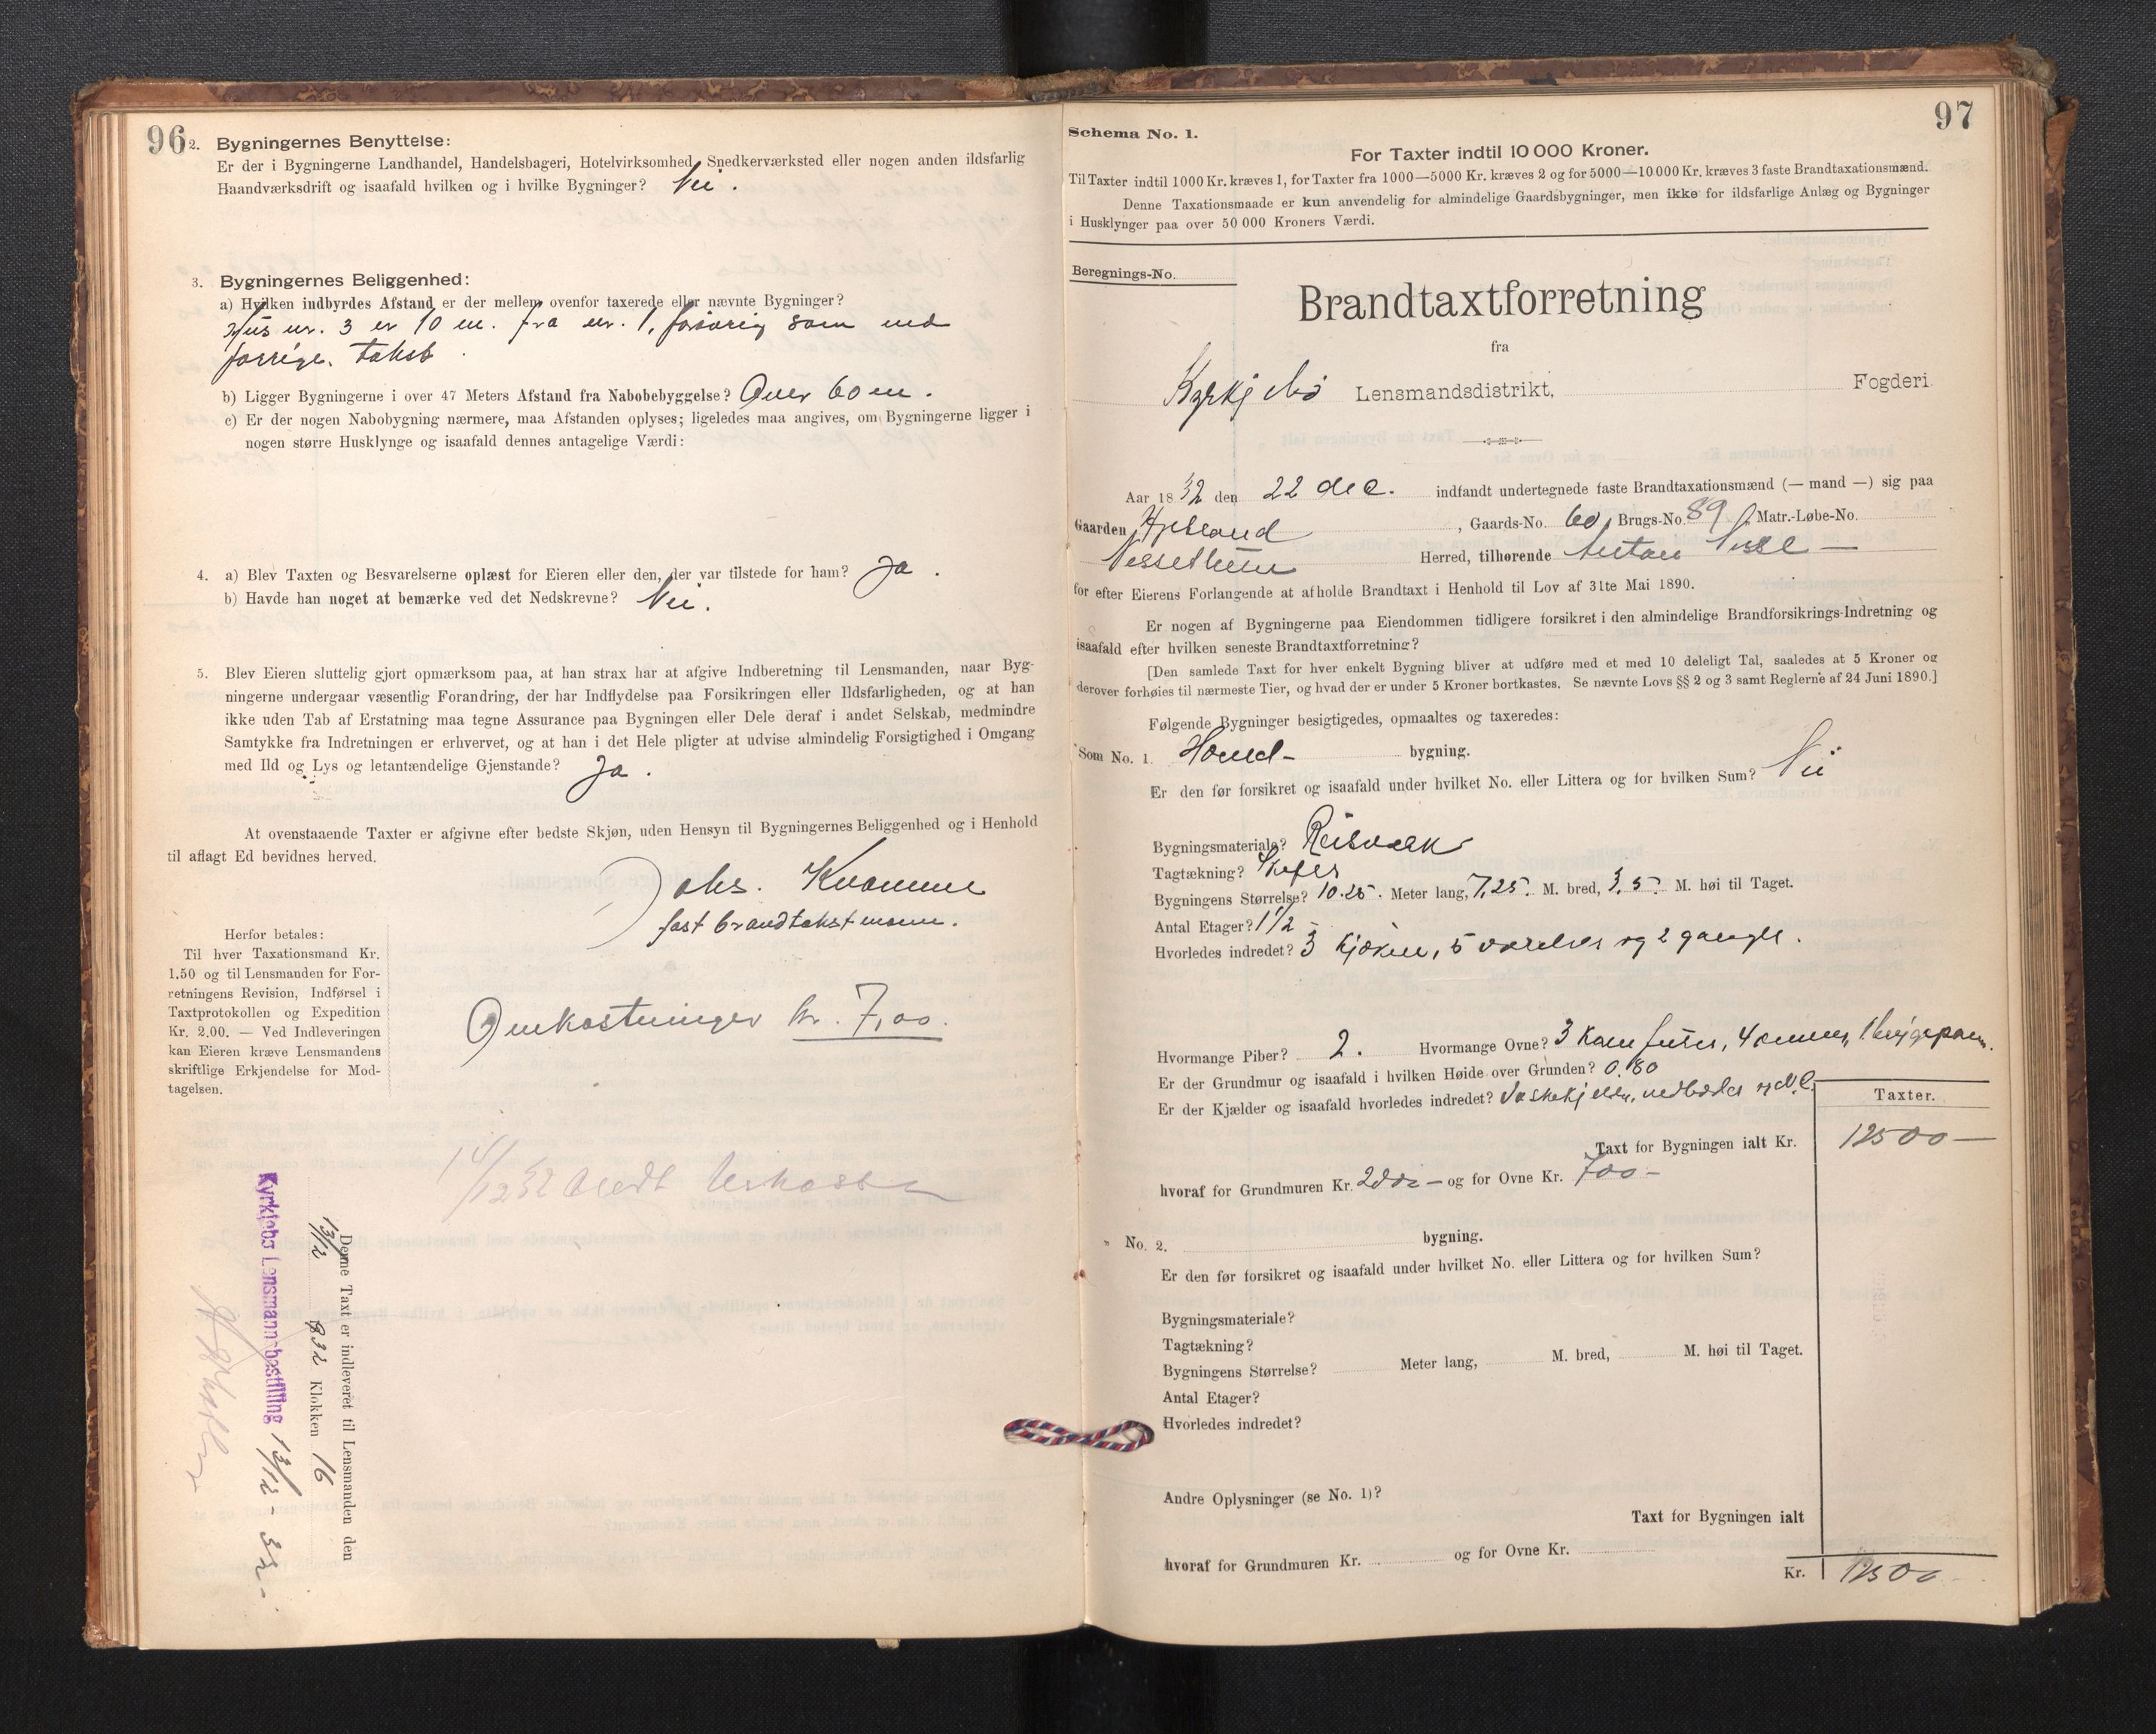 96
2. Bygningernes Benyttelse:
Er der i Bygningerne Landhandel, Handelsbageri, Hotelvirksomhed, Snedkerværksted eller nogen anden ildsfarlig
Haandværksdrift og isaafald hvilken og i hvilke Bygninger? Nei.
3. Bygningernes Beliggenhed:
a) Hvilken indbyrdes Afstand er der mellem ovenfor taxerede eller nævnte Bygninger?
Hus nr. 3 er 10 m. fra nr. 1, forøvrig som ved
forrige takst.
b) Ligger Bygningerne i over 47 Meters Afstand fra Nabobebyggelse? Over 60 m.
c) Er der nogen Nabobygning nærmere, maa Afstanden oplyses; ligeledes maa angives, om Bygningerne ligger i
nogen større Husklynge og isaafald dennes antagelige Værdi:
4. a) Blev Taxten og Besvarelserne oplæst for Eieren eller den, der var tilstede for ham? Ja.
b) Havde han noget at bemærke ved det Nedskrevne? Nei.
5. Blev Eieren sluttelig gjort opmærksom paa, at han strax har at afgive Indberetning til Lensmanden, naar Byg-
ningerne undergaar væsentlig Forandring, der har Indflydelse paa Forsikringen eller Ildsfarligheden, og at han
ikke uden Tab af Erstatning maa tegne Assurance paa Bygningen eller Dele deraf i andet Selskab, medmindre
Samtykke fra Indretningen er erhvervet, og at han i det Hele pligter at udvise almindelig Forsigtighed i Omgang
med Ild og Lys og letantændelige Gjenstande? Ja.
At ovenstaaende Taxter er afgivne efter bedste Skjøn, uden Hensyn til Bygningernes Beliggenhed og i Henhold
til aflagt Ed bevidnes herved.
Johs. Kvamme
fast brandtakstmann.
Herfor betales:
Til hver Taxationsmand Kr.
1.50 og til Lensmanden for For-
retningens Revision, Indførsel i
Taxtprotokollen og Expedition
Kr. 2.00. — Ved Indleveringen
kan Eieren kræve Lensmandens
skriftlige Erkjendelse for Mod-
tagelsen.
Omkostninger kr. 7,00.
14/12 32
Denne Taxt er indleveret til Lensmanden den
13/12 932 Klokken 16
Kyrkjebø Lensmannsbestilling 13/12 - 32 -
97
Schema No. 1.
For Taxter indtil 10 000 Kroner.
Til Taxter indtil 1000 Kr. kræves 1, for Taxter fra 1000—5000 Kr. kræves 2 og for 5000—10 000 Kr. kræves 3 faste Brandtaxationsmænd.
Denne Taxationsmaade er kun anvendelig for almindelige Gaardsbygninger, men ikke for ildsfarlige Anlæg og Bygninger
i Husklynger paa over 50 000 Kroners Værdi.
Beregnings-No.
Brandtaxtforretning
fra
Kyrkjebø Lensmandsdistrikt, Fogderi
Aar 18 32 den 22 dec. indfandt undertegnede faste Brandtaxationsmænd (— mand —) sig paa
Gaarden Hjetland, Gaards-No. 60, Brugs-No. 89, Matr.-Løbe-No.
Herred, tilhørende Anton
for efter Eierens Forlangende at afholde Brandtaxt i Henhold til Lov af 31te Mai 1890.
Er nogen af Bygningerne paa Eiendommen tidligere forsikret i den almindelige Brandforsikrings-Indretning og
isaafald efter hvilken seneste Brandtaxtforretning?
[Den samlede Taxt for hver enkelt Bygning bliver at udføre med et med 10 deleligt Tal, saaledes at 5 Kroner og
derover forhøies til nærmeste Tier, og hvad der er under 5 Kroner bortkastes. Se nævnte Lovs §§ 2 og 3 samt Reglerne af 24 Juni 1890.]
Følgende Bygninger besigtigedes, opmaaltes og taxeredes:
Som No. 1. Hoved- bygning.
Er den før forsikret og isaafald under hvilket No. eller Littera og for hvilken Sum? Nei
Bygningsmateriale? Reisverk
Tagtækning? Skifer
Bygningens Størrelse? 10.25. Meter lang, 7,25. M. bred, 3,5. M. høi til Taget.
Antal Etager? 1 1/2
Hvorledes indredet? 3 kjøken, 5 værelser og 2 ganger.
Hvormange Piber? 2. Hvormange Ovne? 3 komfurer, 4 omner, 1 bryggepann.
Er der Grundmur og isaafald i hvilken Høide over Grunden? 0.80
Er der Kjælder og isaafald hvorledes indredet? Vaskekjelder, vedboder og W.C.
Taxter.
Taxt for Bygningen ialt Kr. 12500—
hvoraf for Grundmuren Kr. 2000— og for Ovne Kr. 700—
" No. 2. bygning.
Er den før forsikret og isaafald under hvilket No. eller Littera og for hvilken Sum?
Bygningsmateriale?
Tagtækning?
Bygningens Størrelse? Meter lang, M. bred, M. høi til Taget.
Antal Etager?
Hvorledes indredet?
Andre Oplysninger (se No. 1)?
Taxt for Bygningen ialt
hvoraf for Grundmuren Kr. og for Ovne Kr.
Kr. 12500